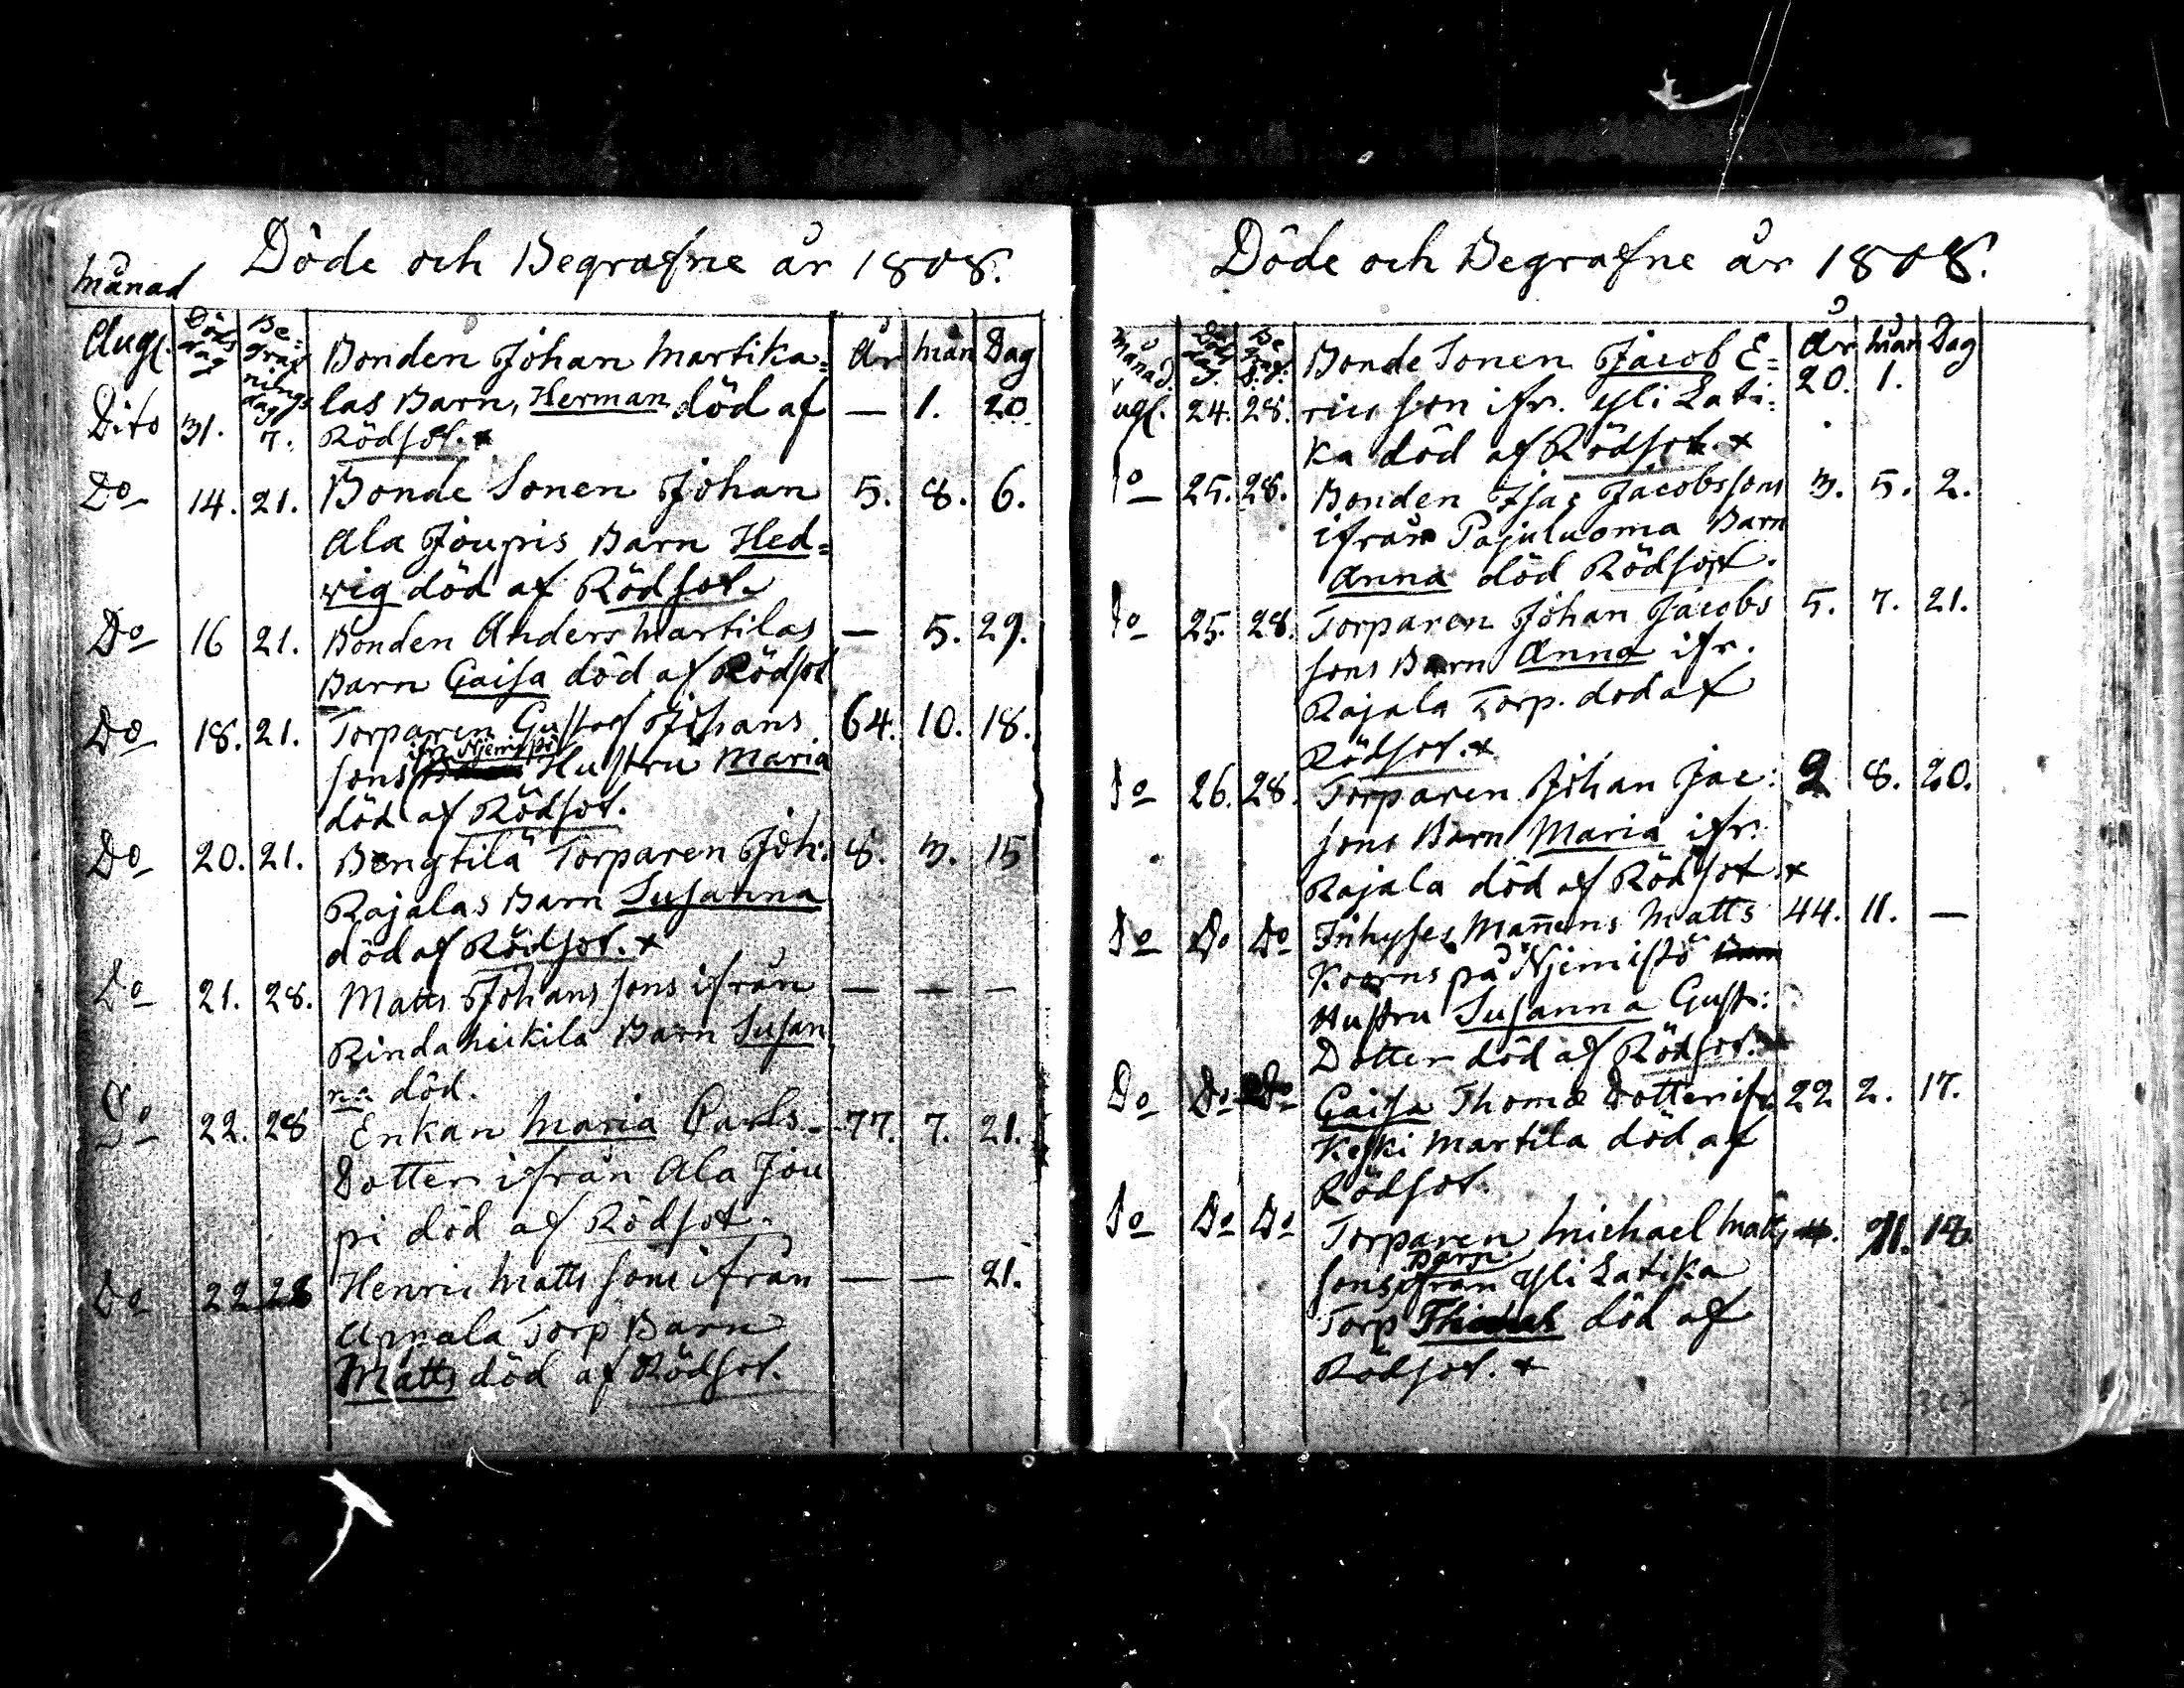 Månad
Döde och Begrafne år 1808.
Augs. Döds dag Be= graf nings dag Bonden Johan Martika= År Mån Dag
Dito 31. 7. las Barn, Herman död af — 1. 20
Rödsot. x
Do 14. 21. Bonde Sonen Johan 5. 8. 6.
Ala Joupis Barn Hed=
vig död af Rödsot.
Do 16 21. Bonden Anders Martilas — 5. 29.
Barn Caisa död af Rödsot
Do 18. 21. Torparen Gustaf Johans 64. 10. 18.
sons ifr. Njemistö Hustru Maria
död af Rödsot.
Do 20. 21. Bengtilä Torparen Joh: 8. 3. 15
Rajalas Barn Susanna
död af Rödsot. x
Do 21. 28. Matts Johans sons ifrån — — —
Rindaheikilä Barn Susan
na död.
Do 22. 28 Enkan Maria Carls- 77. 7. 21.
Dotter ifrån Ala Jou
pi död af Rödsot.
Do 22 28 Henric Matts sons ifrån — — 21.
Torp Barn
Matts död af Rödsot.
Döde och Begrafne år 1808.
Månad. Döds dag. Be gr: d: Bonde Sonen Jacob E= År Mån Dag
ugs. 24. 28. rics son ifr. Yli Lati= 20. 1.
ka död af Rödsot. x
Do 25. 28. Bonden Isac Jacobssons 3. 5. 2.
ifrån Pajuluoma Barn
Anna död Rödsot.
Do 25. 28. Torparen Johan Jacobs 5. 7. 21.
sons Barn Anna ifr.
Rajala Torp. död af
Rödsot. x
Do 26. 28. Torparen Johan Jac: 2 8. 20.
sons Barn Maria ifr.
Rajala död af Rödsot x
Do Do Do Inhyses Mannens Matts 44. 11. —
på Njemistö
Hustru Susanna Gust:
Dotter död af Rödsot.
Do Do Do Caisa Thomæ Dotter ifr. 22 2. 17.
Keski Martila död af
Rödsot.
Do Do Do Torparen Michael Matts 11.
sons Barn ifrån Yli Latika
Torp död af
Rödsot. x